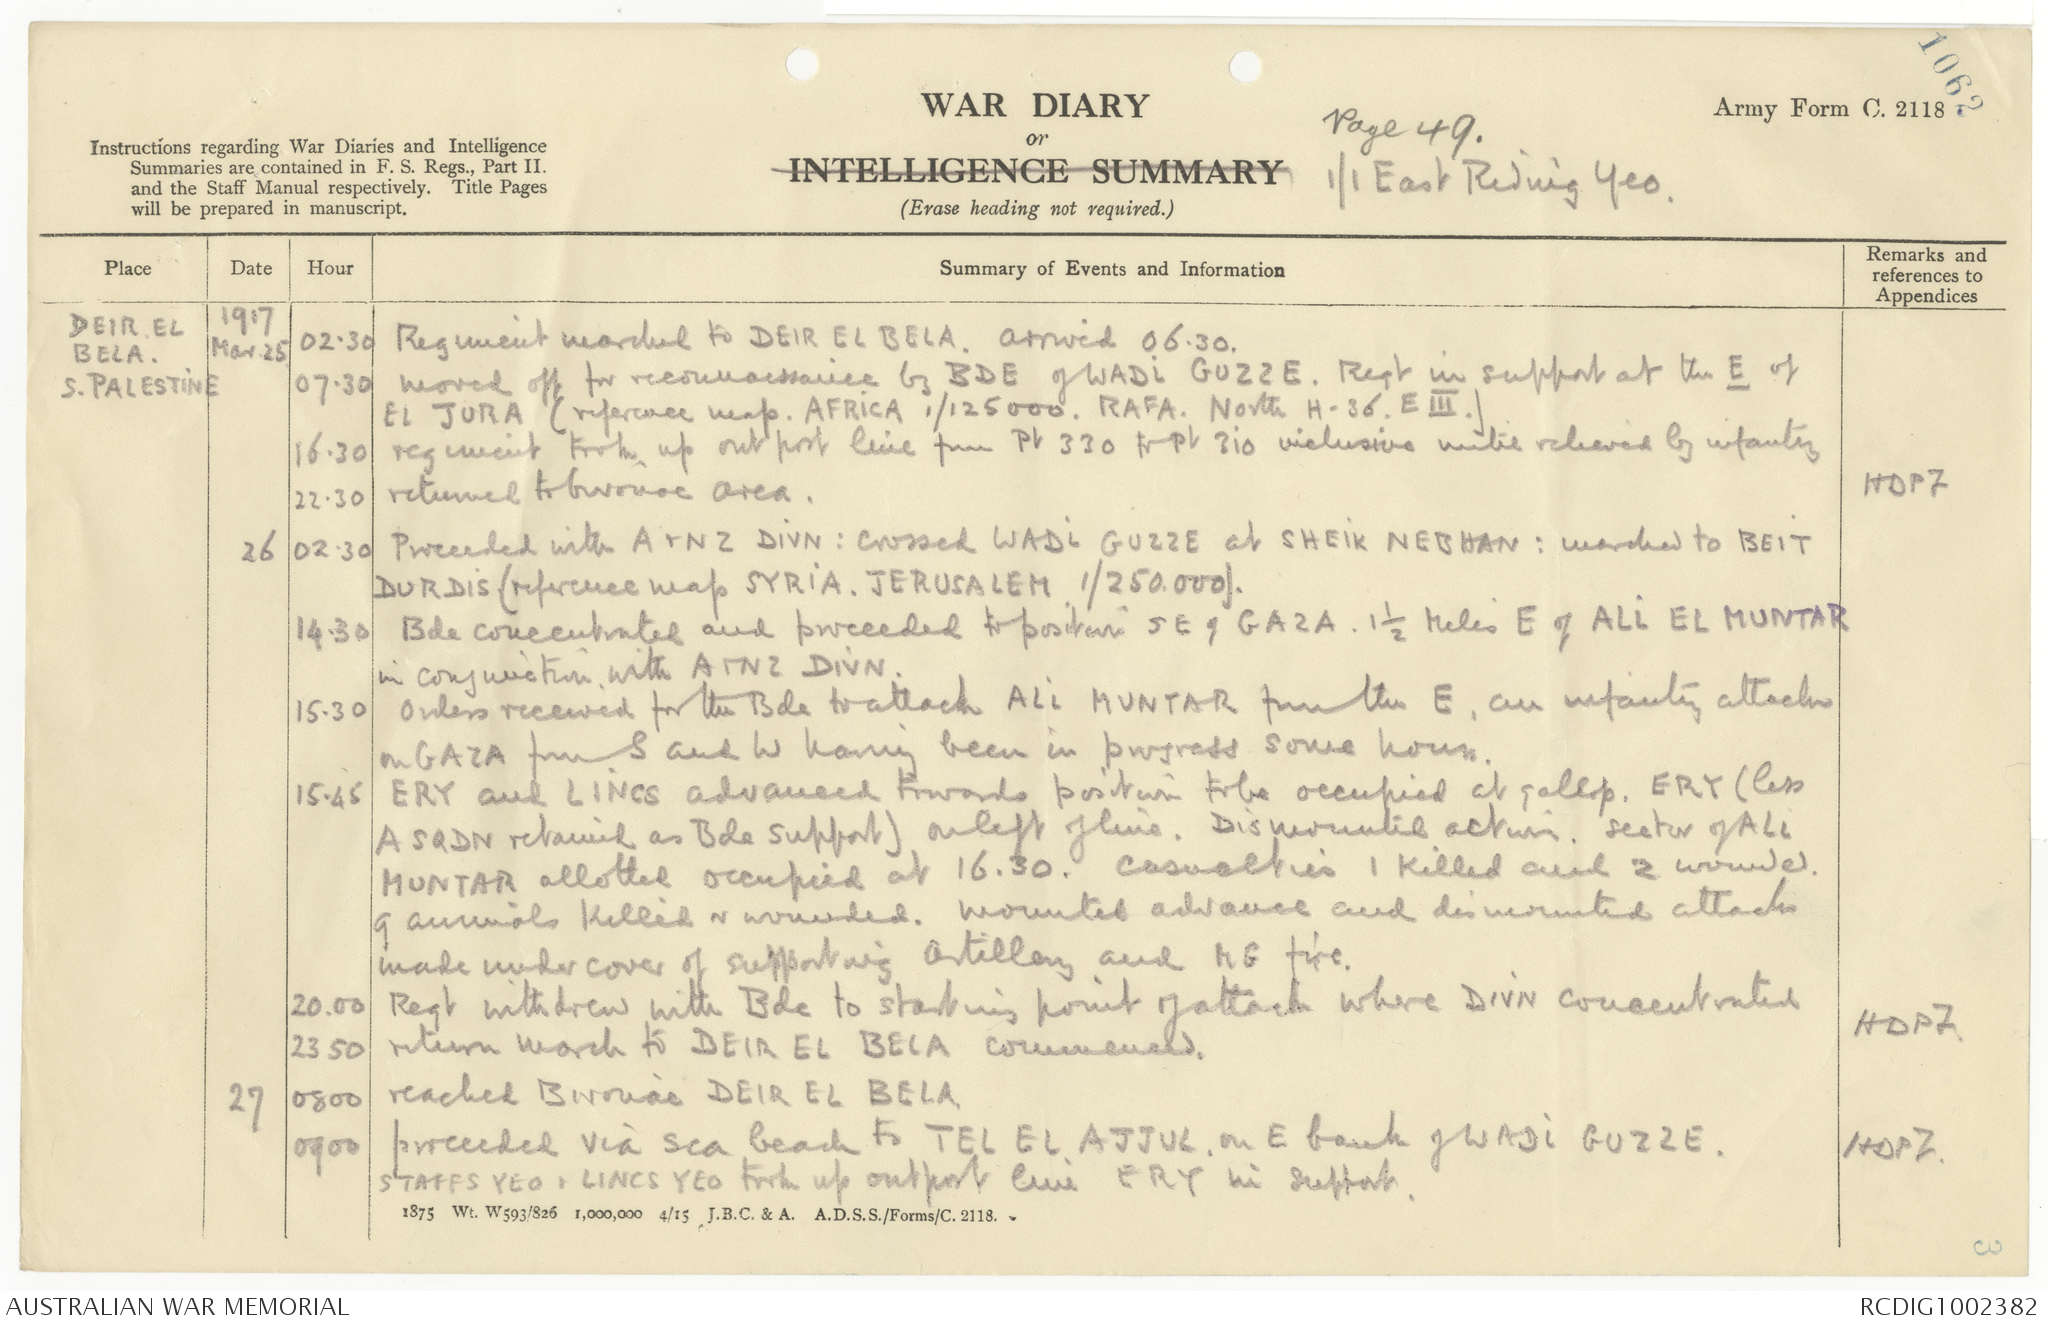 1062
WAR DIARY
or
INTELLIGENCE SUMMARY
(Erase heading not required.)
Page 49.
1/1 East Riding Yeo.
Army Form C. 2118
Instructions regarding War Diaries and Intelligence
Summaries are contained in F. S. Regs., Part II.
and the Staff Manual respectively. Title Pages
will be prepared in manuscript.
Place Date Hour Summary of Events and Information Remarks and references to Appendices
DEIR EL
BELA.
S. PALESTINE
1917
Mar. 25 02.30 Regiment marched to DEIR EL BELA. arrived 06.30.
07.30 moved off for reconnaissance by BDE of WADI GUZZE. Regt in support at the E of
EL JURA (reference map. AFRICA 1/125000. RAFA. North H-36. E III.)
16.30 regiment took up outpost line from Pt 330 to Pt 310 inclusive until relieved by infantry
22.30 returned to bivouac area. HDPZ
26 02.30 Proceeded with A+NZ DIVN : crossed WADI GUZZE at SHEIK NEBHAN : marched to BEIT
DURDIS (reference map SYRIA. JERUSALEM 1/250.000).
14.30 Bde concentrated and proceeded to position SE of GAZA. 1½ Miles E of ALI EL MUNTAR
in conjunction with A+NZ DIVN.
15.30 Orders received for the Bde to attack ALI MUNTAR from the E, an infantry attack
on GAZA from S and W having been in progress some hours.
15.45 ERY and LINCS advanced towards position to be occupied at gallop. ERY (less
A SQDN retained as Bde support) on left of line. Dismounted action. Sector of ALI
MUNTAR allotted occupied at 16.30. Casualties 1 killed and 2 wounded.
9 animals killed & wounded. Mounted advance and dismounted attack
made under cover of supporting Artillery and MG fire.
20.00 Regt withdrew with Bde to starting point of attack where DIVN concentrated
23 50 return march to DEIR EL BELA commenced. HDPZ
27 0800 reached Bivouac DEIR EL BELA
0900 proceeded via sea beach to TEL EL AJJUL. on E bank of WADI GUZZE. HDPZ.
STAFFS YEO + LINCS YEO took up outpost line ERY in support.
1875 Wt. W593/826 1,000,000 4/15 J.B.C. & A. A.D.S.S./Forms/C. 2118.
AUSTRALIAN WAR MEMORIAL
RCDIG1002382